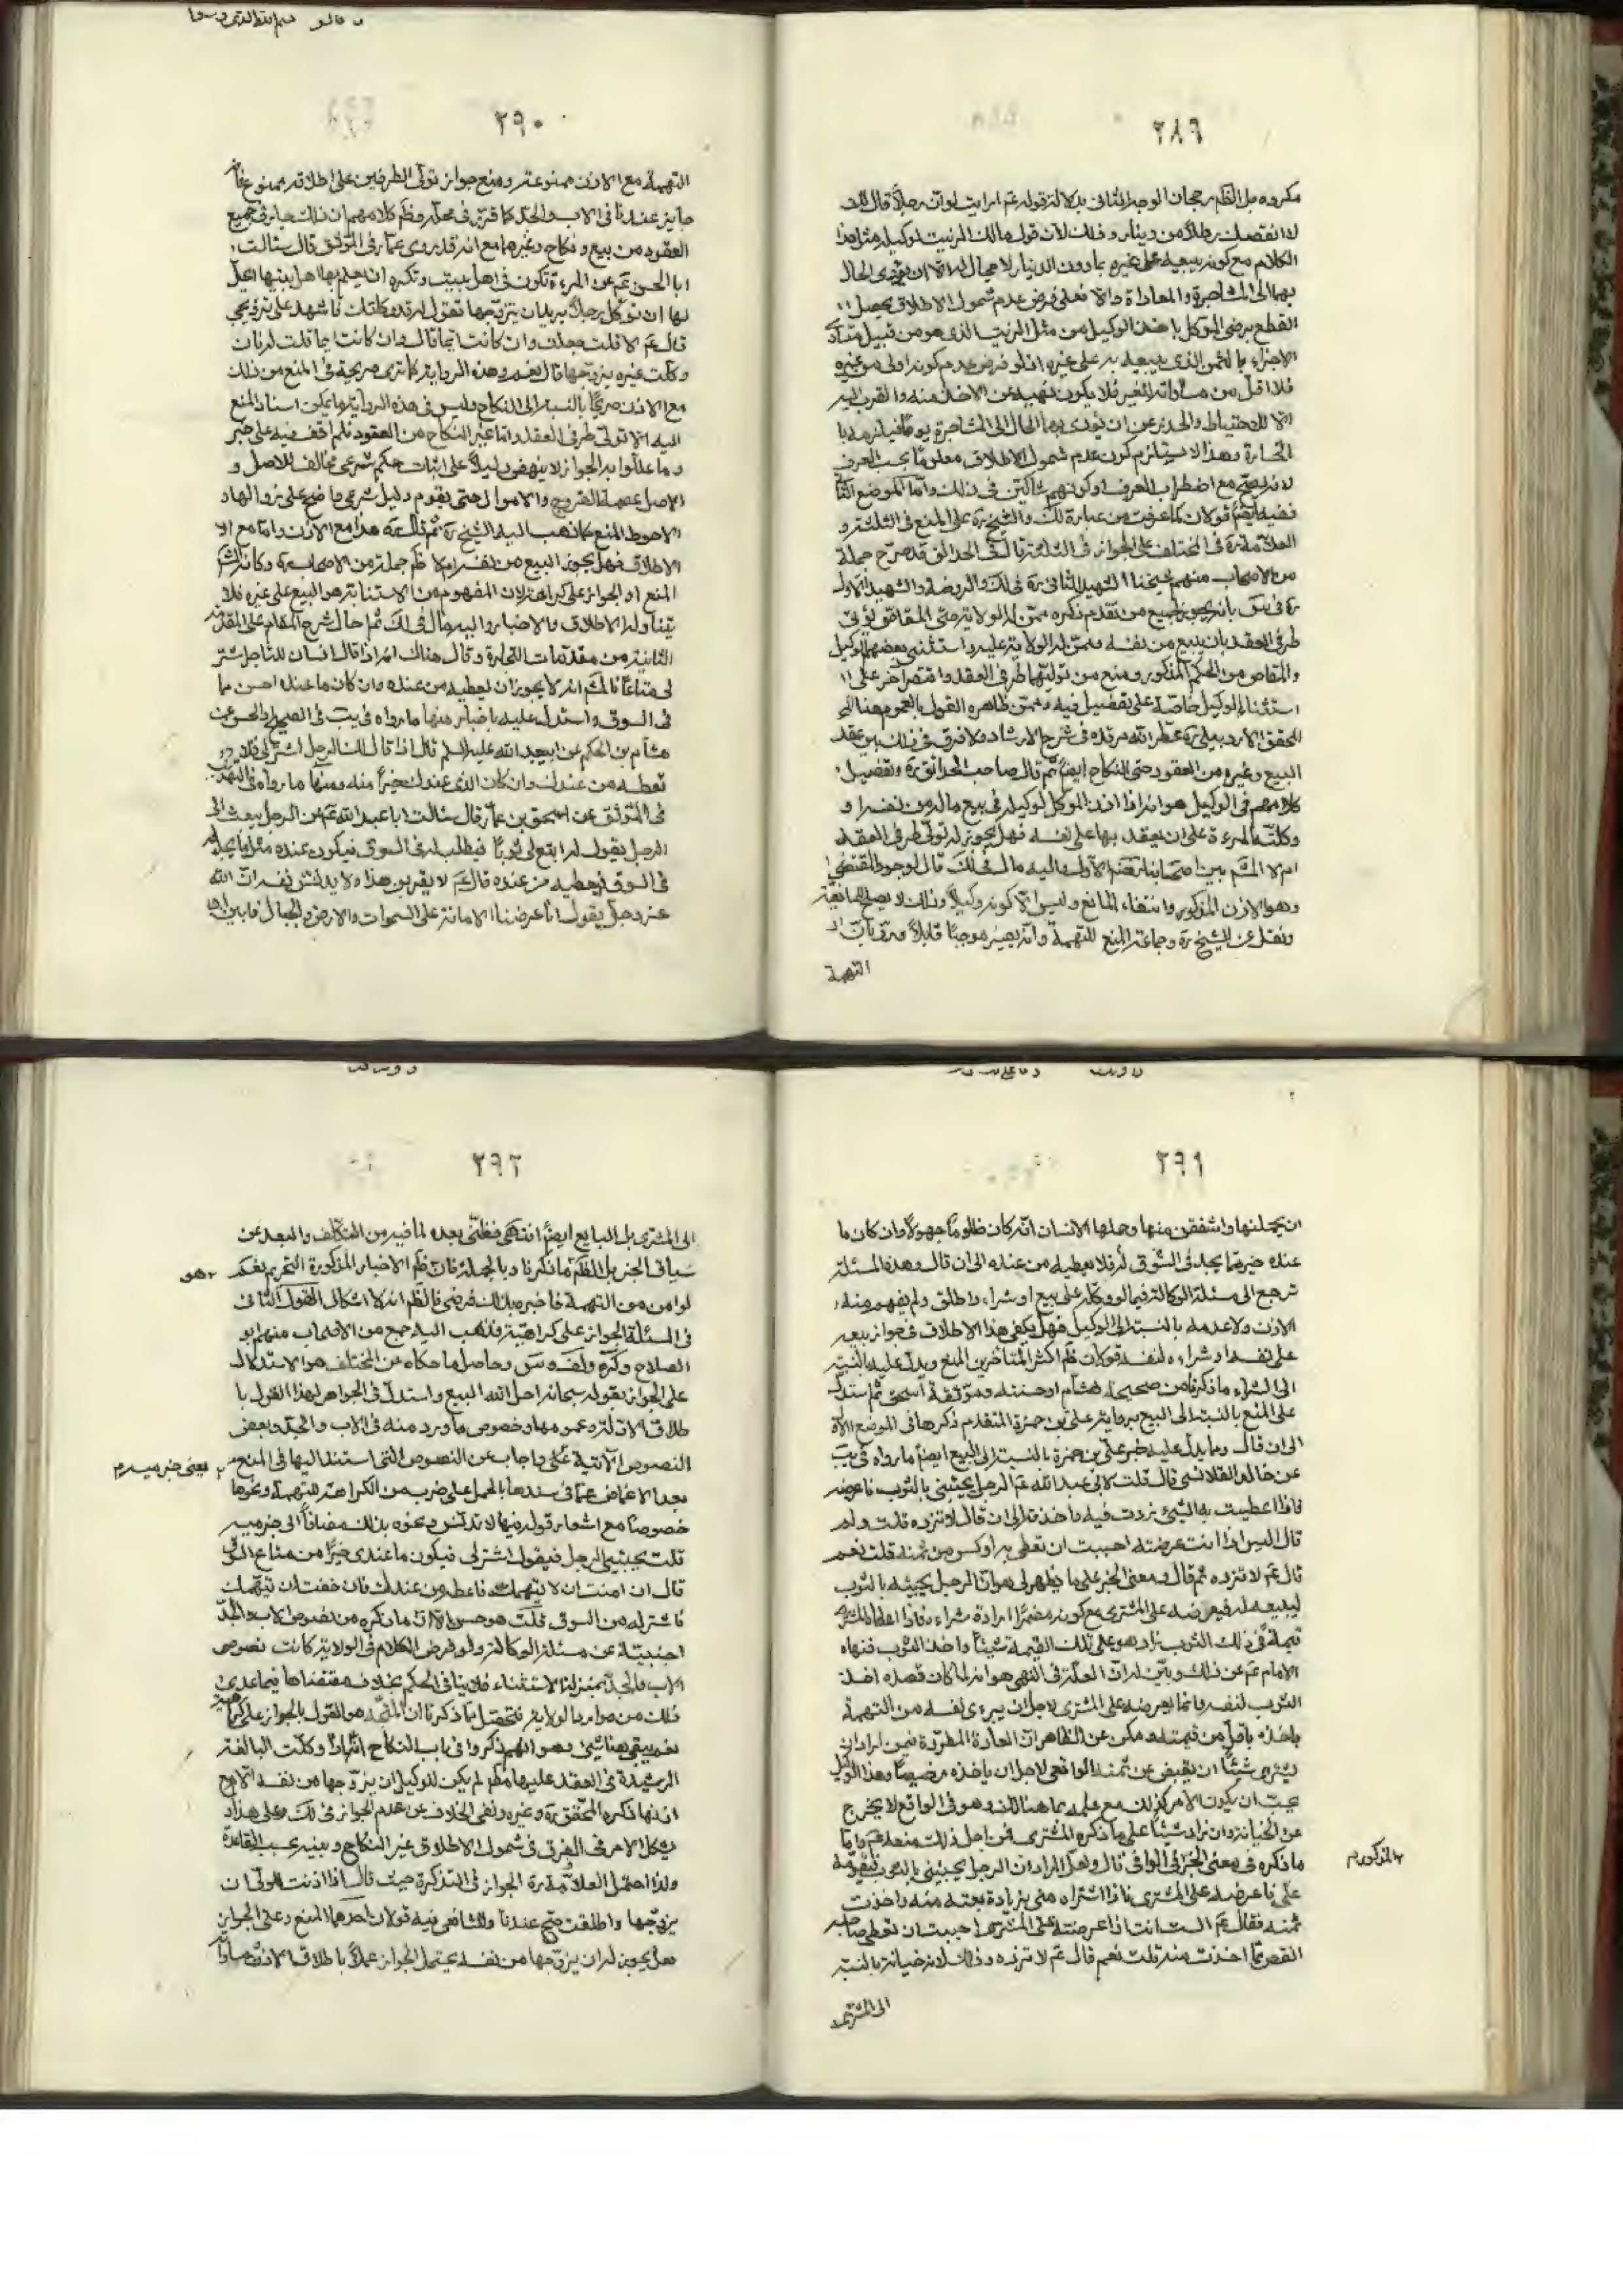 ٢٨٩
مكروه بل الظم رجحان الوجه الثانى بدلالة قوله عم ارايت لو ان رجلا قال لك
الكلام مع كونه يبيعه على غيره بدون الدينار لا مجال له الا ان يؤدى الحال
بهما الى المشاجرة والمعاداة والا فعلى فرض عدم شمول الاطلاق يحصل
القطع برضى الموكل باخذ الوكيل من مثل الزيت الذى هو من قبيل متساوى
الاجزاء بالثمن الذى يبيعه به على غيره اذ لو فرض عدم كونه اولى من غيره
فلا اقل من مساواته للغير فلا يكون نهيه عن الاخذ منه والقرب اليه
الا للاحتياط والحذر عن ان يؤدى بهما الحال الى المشاجرة يوما فيلزمه
الخسارة وهذا لا يستلزم كون عدم شمول الاطلاق معلوما بحسب العرف
لانه يصح مع اضطراب العرف او كونهم شاكين فى ذلك واما الموضع الثانى
ففيه ايضم قولان كما عرفت من عبارة لك والشيخ ره على المنع فى الثلثة و
العلامة ره فى المختلف على الجواز فى الثلثة قال فى الحدائق قد صرح جملة
من الاصحاب منهم شيخنا الشهيد الثانى ره فى لك والروضة والشهيد الاول
ره فى س بانه يجوز لجميع من تقدم ذكره ممن له الولاية حتى المقاص تولى
طرفى العقد بان يبيع من نفسه وممن له الولاية عليه واستثنى بعضهم الوكيل
والمقاص من الحكم المذكور ومنع من توليهما طرفى العقد واقتصر اخر على
استثناء الوكيل خاصة على تفصيل فيه وممن ظاهره القول بالعموم هنا
المحقق الاردبيلى ره عطر الله مرقده فى شرح الارشاد ولا فرق فى ذلك بين عقد
البيع وغيره من العقود حتى النكاح ايضا ثم قال صاحب الحدائق ره وتفصيل
كلامهم فى الوكيل هو انه اذا اذن الموكل لوكيله فى بيع ماله من نفسه او
وكلته المرءة على ان يعقد بها على نفسه فهل يجوز له تولى طرفى العقد
ام لا المشم بين اصحابنا رضهم الاول واليه مال فى لك قال لوجود المقتضى
وهو الاذن المذكور وانتفاء المانع وليس الا كونه وكيلا وذلك لا يصلح للمانعية
ونقل عن الشيخ ره وجماعة المنع للتهمة وانه يصير موجبا قابلا ورد بان
التهمة
٢٩٠
التهمة مع الاذن ممنوعة ومنع جواز تولى الطرفين على اطلاقه ممنوع فانه
جايز عندنا فى الاب والجد كما قرر فى محله وظم كلامهم ان ذلك جايز فى جميع
العقود من بيع ونكاح وغيرهما مع انه قد روى عمار فى الموثق قال سئلت
ابا الحسن عم عن المرءة تكون فى اهل بيت وتكره ان يعلم بها اهل بيتها ايحل
لها ان توكل رجلا يريد ان يتزوجها تقول له قد وكلتك فاشهد على تزويجى
قال عم لا قلت جعلت وان كانت ايما قال وان كانت ايما قلت له فان
وكلت غيره بتزوجها قال نعم وهذه الرواية كما ترى صريحة فى المنع من ذلك
مع الاذن صريحا بالنسبة الى النكاح وليس فى هذه الرواية ما يمكن اسناد المنع
اليه الا تولى طرفى العقد واما غير النكاح من العقود فلم اقف فيه على خبر
وما عللوا به الجواز لا ينهض دليلا على اثبات حكم شرعى مخالف للاصل و
الاصل عصمة الفروج والاموال حتى يقوم دليل شرعى واضح على
الاحوط المنع كما ذهب اليه الشيخ ره ثم قال ره هذا مع الاذن واما مع
الاطلاق فهل يجوز البيع من نفسه ام لا ظم جملة من الاصحاب
المنع او الجواز على كراهة لان المفهوم من الاستنابة هو البيع على غيره فلا
يتناوله الاطلاق والاخبار واليه مال فى لك ثم احال شرح المقام على المقدمة
الثانية من مقدمات التجارة وقال هناك انه اذا قال انسان للتاجر اشتر
لى متاعا فالمشم انه لا يجوز ان يعطيه من عنده وان كان ما عنده احسن مما
فى السوق واستدل عليه باخبار منها ما رواه فى يب فى الصحيح او الحسن عن
هشام بن الحكم عن ابيعبد الله عليه السلم قال اذا قال لك الرجل اشتر لى فلا
تعطه من عندك وان كان الذى عندك خيرا منه ومنها ما رواه فى التهذيب
فى الموثق عن اسحق بن عمار قال سئلت ابا عبد الله عم عن الرجل يبعث الى
الرجل يقول له ابتع لى ثوبا فيطلب له فى السوق فيكون عنده مثل ما يجد له
فى السوق فيعطيه من عنده قال عم لا يقربن هذا ولا يدنس نفسه ان الله
عز وجل يقول انا عرضنا الامانة على السموات والارض والجبال فابين
٢٩١
ان يحملنها واشفقن منها وحملها الانسان انه كان ظلوما جهولا وان كان ما
عنده خير مما يجد فى السوق له فلا يعطيه من عنده الى ان قال وهذه المسئلة
ترجع الى مسئلة الوكالة فيما لو وكله على بيع او شراء واطلق ولم يفهم منه
الاذن ولا عدمه بالنسبة الى الوكيل فهل يكفى هذا الاطلاق فى جواز بيعه
على نفسه او شراءه لنفسه قولان ظم اكثر المتاخرين المنع ويدل عليه بالنسبة
الى الشراء ما ذكرنا من صحيحة هشام او حسنته وموثقة اسحق ثم استدل
على المنع بالنسبة الى البيع برواية على بن حمزة المتقدم ذكرها فى الموضع
الى ان قال وما يدل عليه خبر على بن حمزة بالنسبة الى البيع ايضا ما رواه فى يب
عن خالد القلانسى قال قلت لابى عبد الله عم الرجل يجيئنى بالثوب فاعرضه
فاذا اعطيت به الشيئ زدت فيه واخذته الى ان قال لا تزده قلت ولم
قال اليس اذا انت عرضته احببت ان تعطى به اوكس من ثمنه قلت نعم
قال عم لا تزده ثم قال ومعنى الخبر على ما يظهر لى هو ان الرجل يجيئه بالثوب
ليبيعه له فيعرضه على المشترى مع كونه مضمرا ارادة شراءه فاذا اعطاه المشترى
قيمة فى ذلك الثوب زاد هو على تلك القيمة شيئا واخذ الثوب فنهاه
الامام عم عن ذلك وبين له ان العلة فى النهى هو انه لما كان قصده اخذ
الثوب لنفسه وانما يعرضه على المشترى لاجل ان يبرى نفسه من التهمة
باخذه باقل من قيمته ومكن عن الظاهر ان العادة المطردة فيمن اراد ان
يشترى شيئا ان يقبض عن ثمنه الواقعى لاجل ان ياخذه رخيصا وهذا الوكيل
يحب ان يكون الامر كذلك مع علمه بما هنالك وهو فى الواقع لا يخرج
عن الخيانة وان زاد شيئا على ما ذكره المشترى فمن اجل ذلك منعه عم واما
ما ذكره فى معنى الخبر فى الوافى قال ولعل المراد ان الرجل يجيئنى بالثوب فيقومه
على فاعرضه على المشترى فاذا اشتراه منى بزيادة بعته منه واخذت
ثمنه فقال عم الست انت اذا عرضته على المشترى احببت ان تعطى صاحبه
انقص مما اخذت منه قلت نعم قال عم لا تزده وذلك لانه خيانة بالنسبة
الى المشترى
المذكور م
٢٩٢
الى المشترى بل البايع ايضم انتهى فظنى بعده لما فيه من التكلف والبعد عن
سياق الخبر بل الظم ما ذكرنا وبالجملة فان ظم الاخبار المذكورة التحريم نعم
لو امن من التهمة فاخبره بذلك فرضى فالظم انه لا اشكال القول الثانى
هو
فى المسئلة الجواز على كراهية فذهب اليه جمع من الاصحاب منهم ابو
الصلاح وكره ولف وس وحاصل ما حكاه عن المختلف هو الاستدلال
على الجواز بقوله سبحانه احل الله البيع واستدل فى الجواهر لهذا القول با
طلاق الادلة وعمومها وخصوص ما ورد منه فى الاب والجد وبعض
النصوص الاتية على واجاب عن النصوص التى استند اليها فى المنع
يعنى خبر ميسر م
بعد الاغماض عما فى سندها بالحمل على ضرب من الكراهة للتهمة ونحوها
خصوصا مع اشعار قوله فيها لا تدنس ونحوه بذلك مضافا الى خبر ميسر
قلت يجيئنى الرجل فيقول اشتر لى فيكون ما عندى خيرا من متاع السوق
قال ان امنت ان لا يتهمك فاعطه من عندك فان خفت ان يتهمك
فاشتر له من السوق قلت هو حسن الا ان ما ذكره من نصوص الاب والجد
اجنبية عن مسئلة الوكالة ولو فرض الكلام فى الولاية كانت نصوص
الاب والجد بمنزلة الاستثناء فلا ينافى الحكم بخلاف مقتضاها فيما عدى
ذلك من موارد الولاية فتحصل مما ذكرنا ان المتجه هو القول بالجواز على كراهية
نعم يبقى هنا شيئ وهو انهم ذكروا فى باب النكاح انه اذا وكلت البالغة
الرشيدة فى العقد عليها مطم لم يكن للوكيل ان يزوجها من نفسه الا مع
اذنها ذكره المحقق ره وغيره ونفى الخلاف عن عدم الجواز فى لك وعلى هذا
يشكل الامر فى الفرق فى شمول الاطلاق غير النكاح وبينه بحسب القاعدة
ولذا احتمل العلامة ره الجواز فى التذكرة حيث قال اذا اذنت للولى ان
يزوجها واطلقت صح عندنا وللشافعى فيه قولان احدهما المنع وعلى الجواز
هل يجوز له ان يزوجها من نفسه يحتمل الجواز عملا باطلاق الاذن